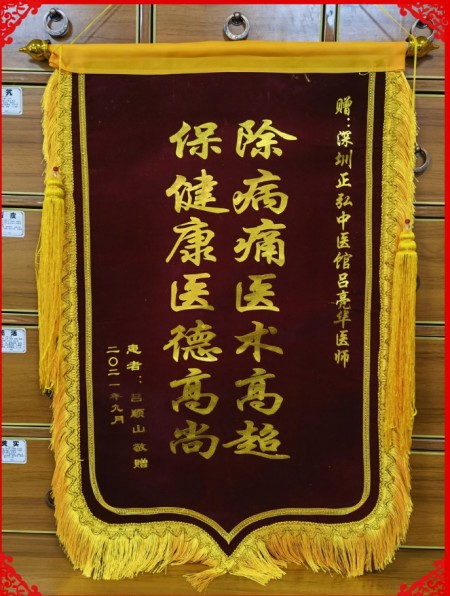 赠：深圳正弘中医馆吕亮华医师
除病痛医术高超
保健康医德高尚
患者：吕顺山 敬赠
二〇二一年九月